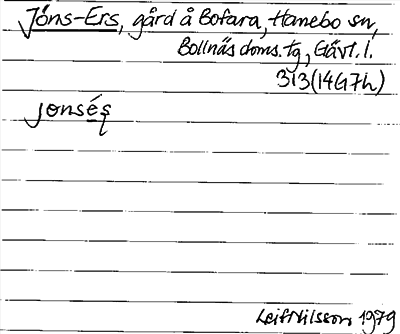 Jöns-Ers, gård å Bofara, Hanebo sn,
Bollnäs doms. tg, Gävl. l.
313(14G7h)
jonsés̨
Leif Nilsson 1979